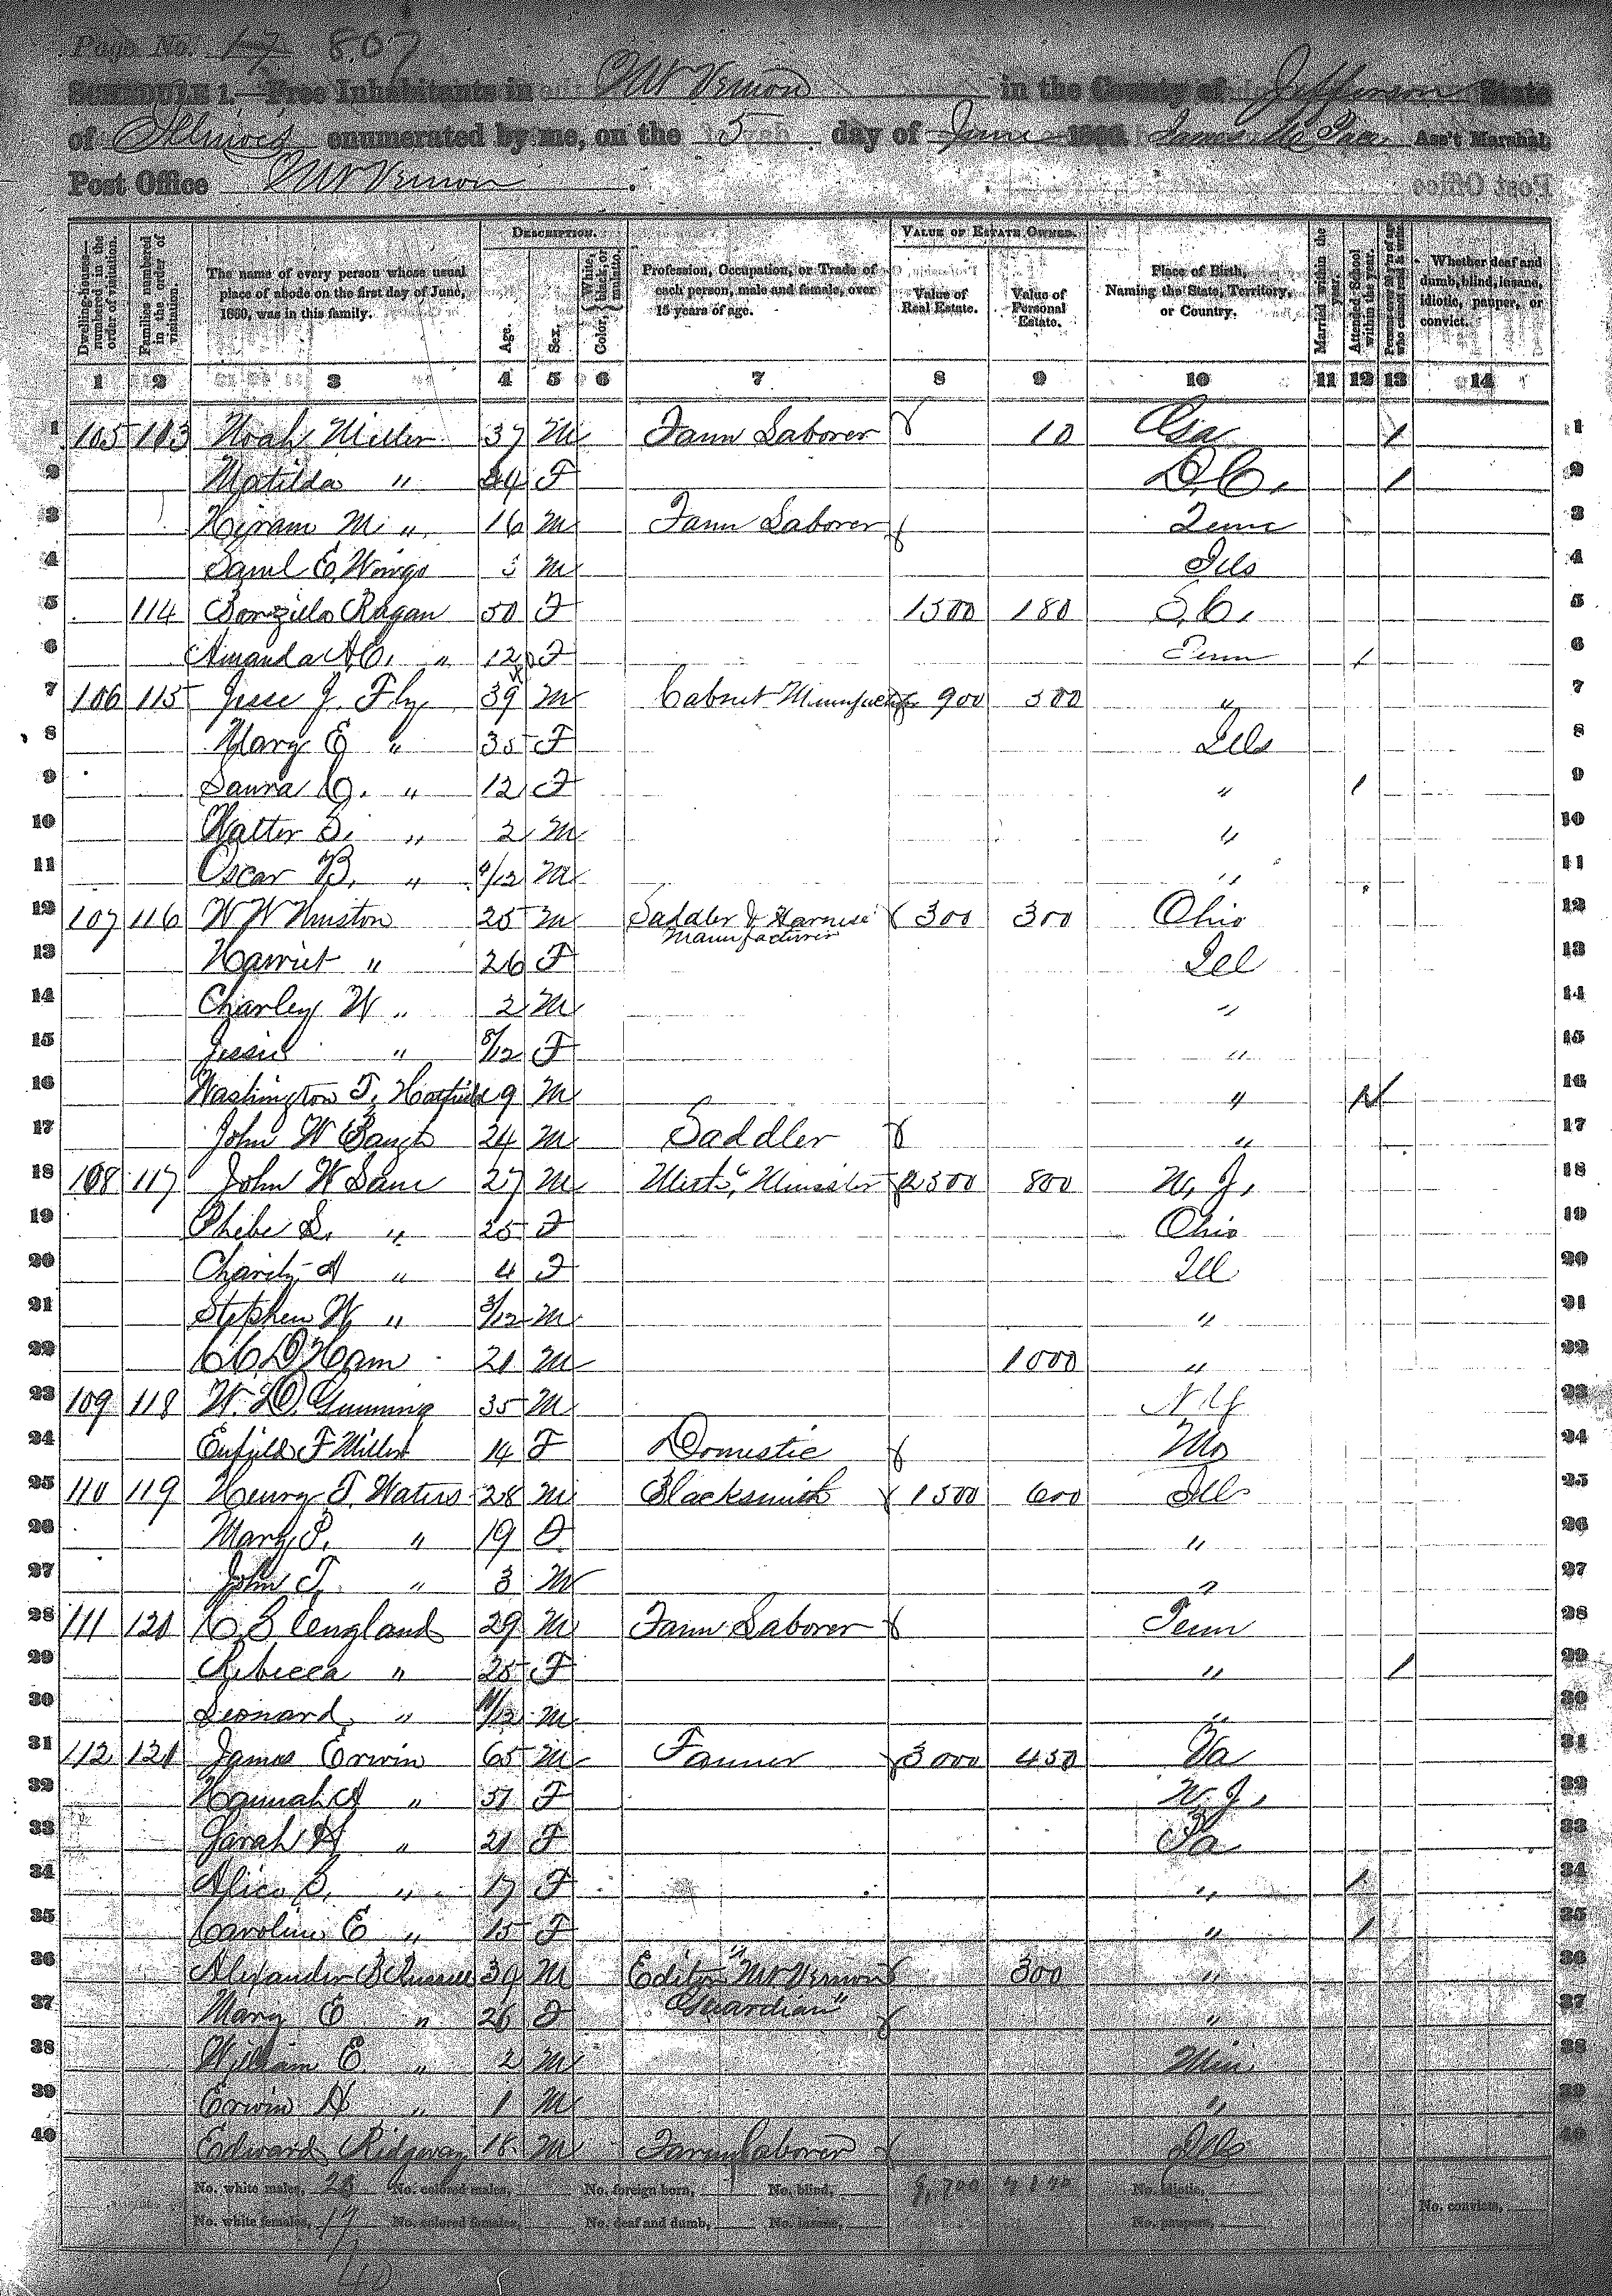 Page No. 17 807
SCHEDULE 1.—Free Inhabitants in Mt Vernon in the County of Jefferson State
of Illinois enumerated by me, on the 5 day of June 1860. Ass't Marshal.
Post Office Mt Vernon.
Dwelling-houses—numbered in the order of visitation. Families numbered in the order of visitation. The name of every person whose usual place of abode on the first day of June, 1860, was in this family. DESCRIPTION. Age. Sex. Color, White, black, or mulatto. Profession, Occupation, or Trade of each person, male and female, over 15 years of age. VALUE OF ESTATE OWNED. Value of Real Estate. Value of Personal Estate. Place of Birth, Naming the State, Territory, or Country. Married within the year. Attended School within the year. Persons over 20 y'rs of age who cannot read & write. Whether deaf and dumb, blind, insane, idiotic, pauper, or convict.
1 2 3 4 5 6 7 8 9 10 11 12 13 14
1 105 113 Noah Miller 37 M Farm Laborer 10 / 1
2 Matilda " F / 2
3 Hiram M. " 16 M Farm Laborer Tenn 3
4 Saml E. Wingo M Ills 4
5 114 Ragan 50 F 1500 180 S.C. 5
6 Amanda " 12 F Tenn / 6
7 106 115 Jesse J. Fly 39 M Cabnet Manufacturer 900 300 " 7
8 Mary E " 35 F Ills 8
9 Laura " 12 F " / 9
10 Walter S. " 2 M " 10
11 Oscar B. " /12 M " 11
12 107 116 W W 25 M Saddler & Harness Manufacturer 300 300 Ohio 12
13 Harriet " 26 F Ill 13
14 Charley W " 2 M " 14
15 Jessie " 8/12 F " 15
16 Washington T. Hatfield 9 M " 16
17 John W Baugh 24 M Saddler " 17
18 108 117 John W Lane 27 M Minister 2300 800 N.J. 18
19 Phebe L. " 25 F Ohio 19
20 Charity A " 4 F Ill 20
21 Stephen W " 3/12 M " 21
22 C C D Ham 21 M 1000 " 22
23 109 118 35 M N.Y 23
24 F Miller 14 F Domestic Mo 24
25 110 119 Henry T. Waters 28 M Blacksmith 1500 600 Ills 25
26 Mary P. " 19 F " 26
27 John T. " 3 M " 27
28 111 120 England 29 M Farm Laborer Tenn 28
29 Rebecca " 25 F " / 29
30 Leonard " /12 M " 30
31 112 121 James Erwin 65 M Farmer 3000 450 Va 31
32 Hannah A " F N.J. 32
33 Sarah A " 21 F Pa 33
34 Alice S. " 17 F " / 34
35 Caroline E " 15 F " / 35
36 Alexander Russell 39 M Editor "Mt Vernon 300 " 36
37 Mary E " 26 F Guardian" " 37
38 William E. " 2 M Min 38
39 Erwin H " 1 M " 39
40 Edward Ridgway 18 M Farm Laborer Ills 40
No. white males, No. colored males, No. foreign born, No. blind, No. idiotic,
No. white females, 17 No. colored females, No. deaf and dumb, No. insane, No. paupers, No. convicts,
40